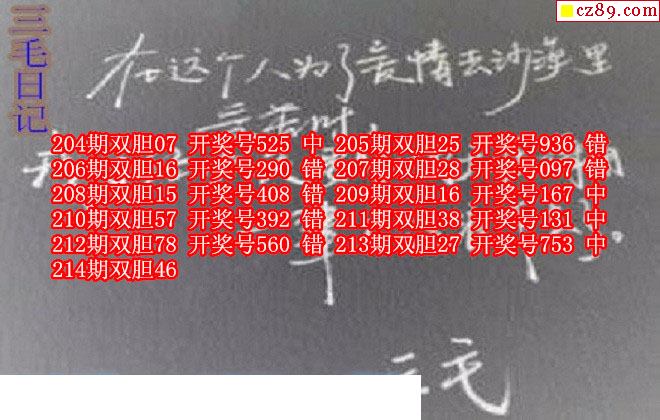 cz89.com
三毛日记
在这个人为了爱情去沙漠里
204期双胆07 开奖号525 中 205期双胆25 开奖号936 错
206期双胆16 开奖号290 错 207期双胆28 开奖号097 错
208期双胆15 开奖号408 错 209期双胆16 开奖号167 中
210期双胆57 开奖号392 错 211期双胆38 开奖号131 中
212期双胆78 开奖号560 错 213期双胆27 开奖号753 中
214期双胆46
三毛